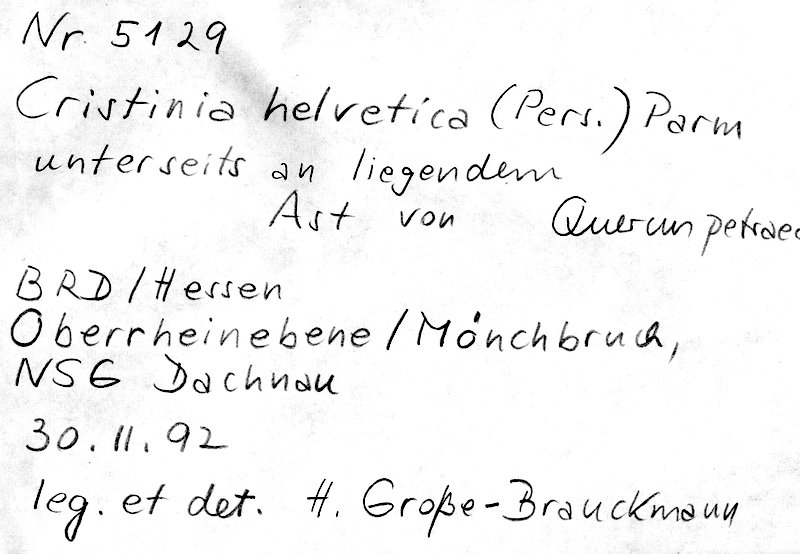 Nr 5129
Cristinia helvetica (Pers.) Parm
unterseits an liegendem
Ast von Quercus petraea
BRD/Hessen
Oberrheinebene/Mönchbruch,
NSG Dachnau
30.11.92
leg. et det. H. Große-Brauckmann